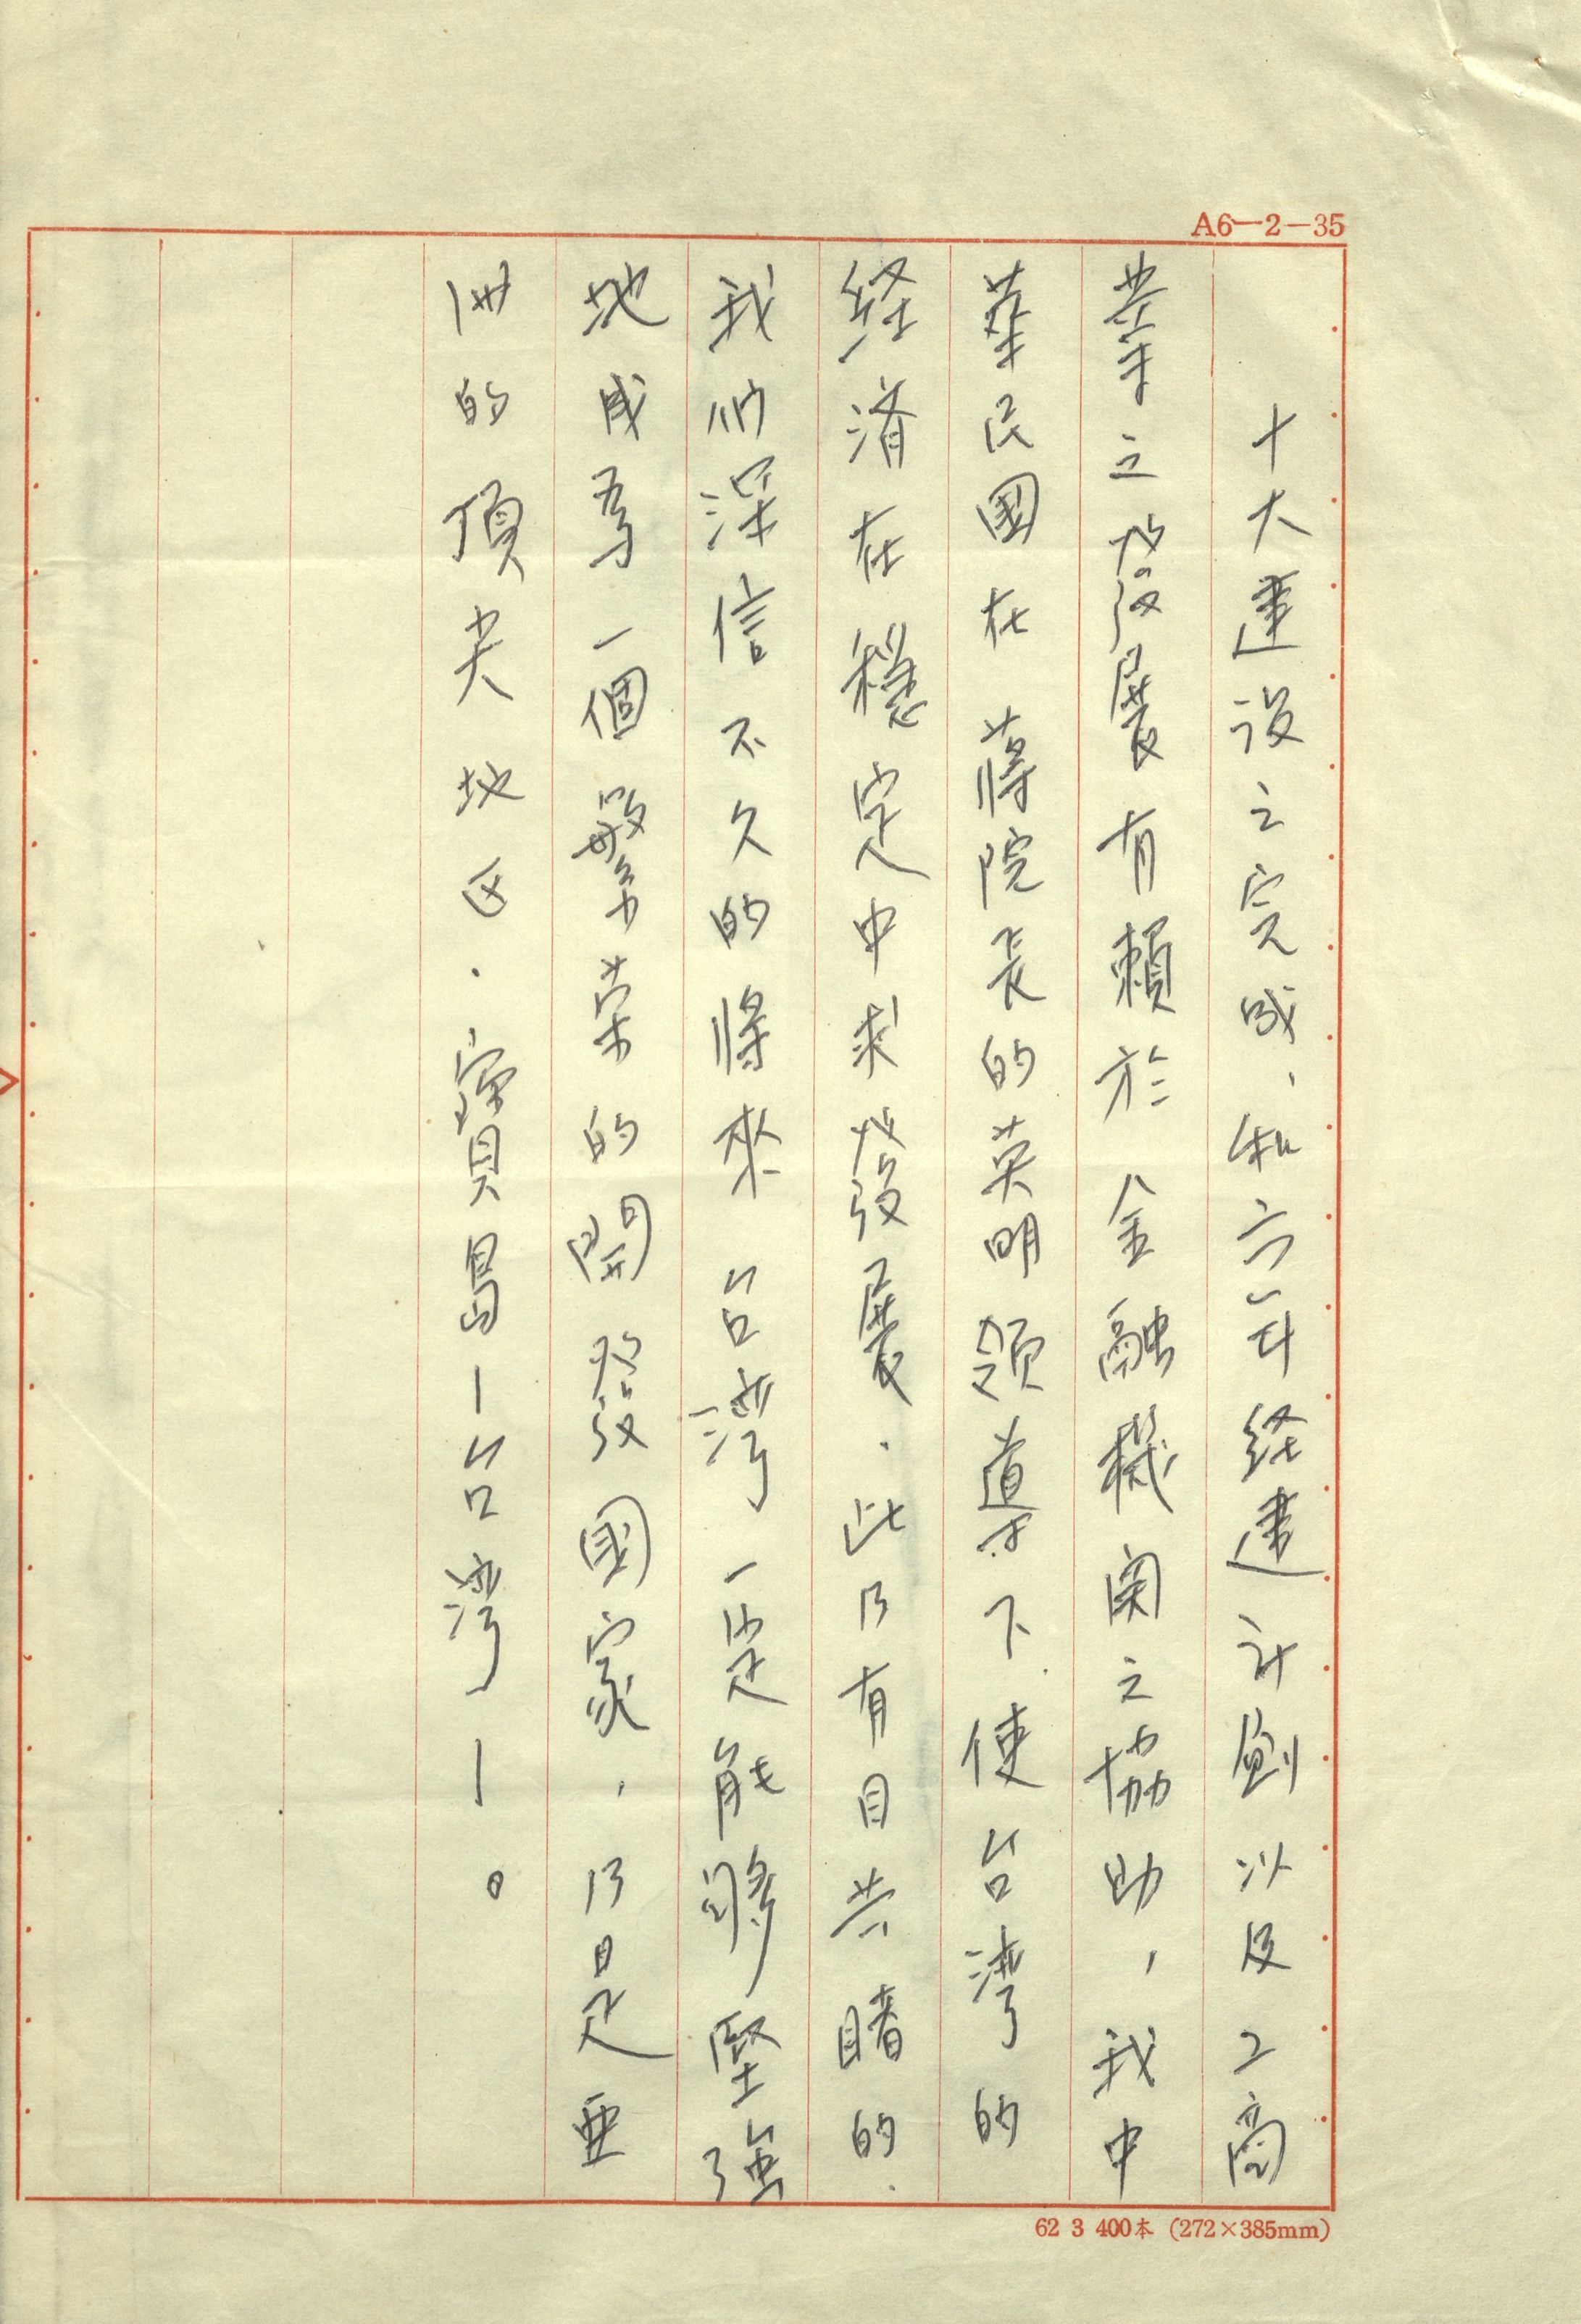 A6—2—35
十大建設之完成、和六年経建計劃以及工商
業之發展有賴於金融機関之協助，我中
華民國在 蔣院長的英明領導下.使台湾的
経済在穩定中求發展.此乃有目共睹的.
我们深信不久的將來台湾一定能夠堅強
地成為一個繁荣的開發國家，乃是亞
洲的頂尖地区.寶島—台湾—。
62 3 400本 (272×385mm)